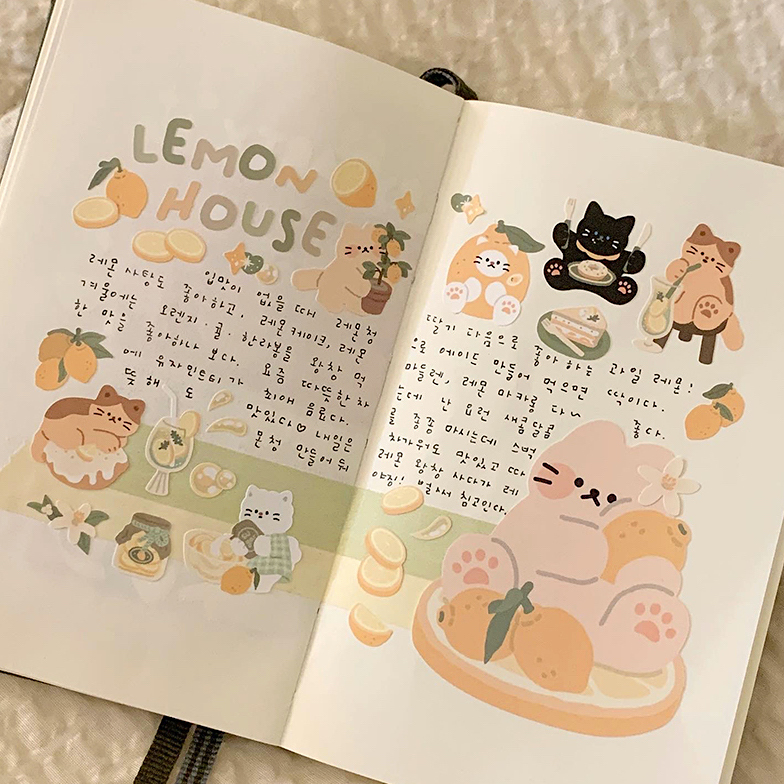 LEMON
HOUSE
입맛이 없을 때 레몬청
레몬 사탕도 좋아하고 레몬케이크, 레몬
겨울에는 오렌지·귤·한라봉을 왕창 먹
한 맛을 좋아하나 보다. 요즘 따뜻한 차
에 유자민트티가 최애 음료다.
뜻해도 맛있다♡ 내일은
몬청 만들어 둬
딸기 다음으로 좋아하는 과일 레몬!
으로 에이드 만들어 먹으면 딱이다.
마들렌, 레몬 마카롱 다~ 좋다.
는데 난 요런 새콤달콤
를 종종 마시는데 스벅
차가워도 맛있고 따
레몬 왕창 사다가 레
야징! 벌써 침고인다.